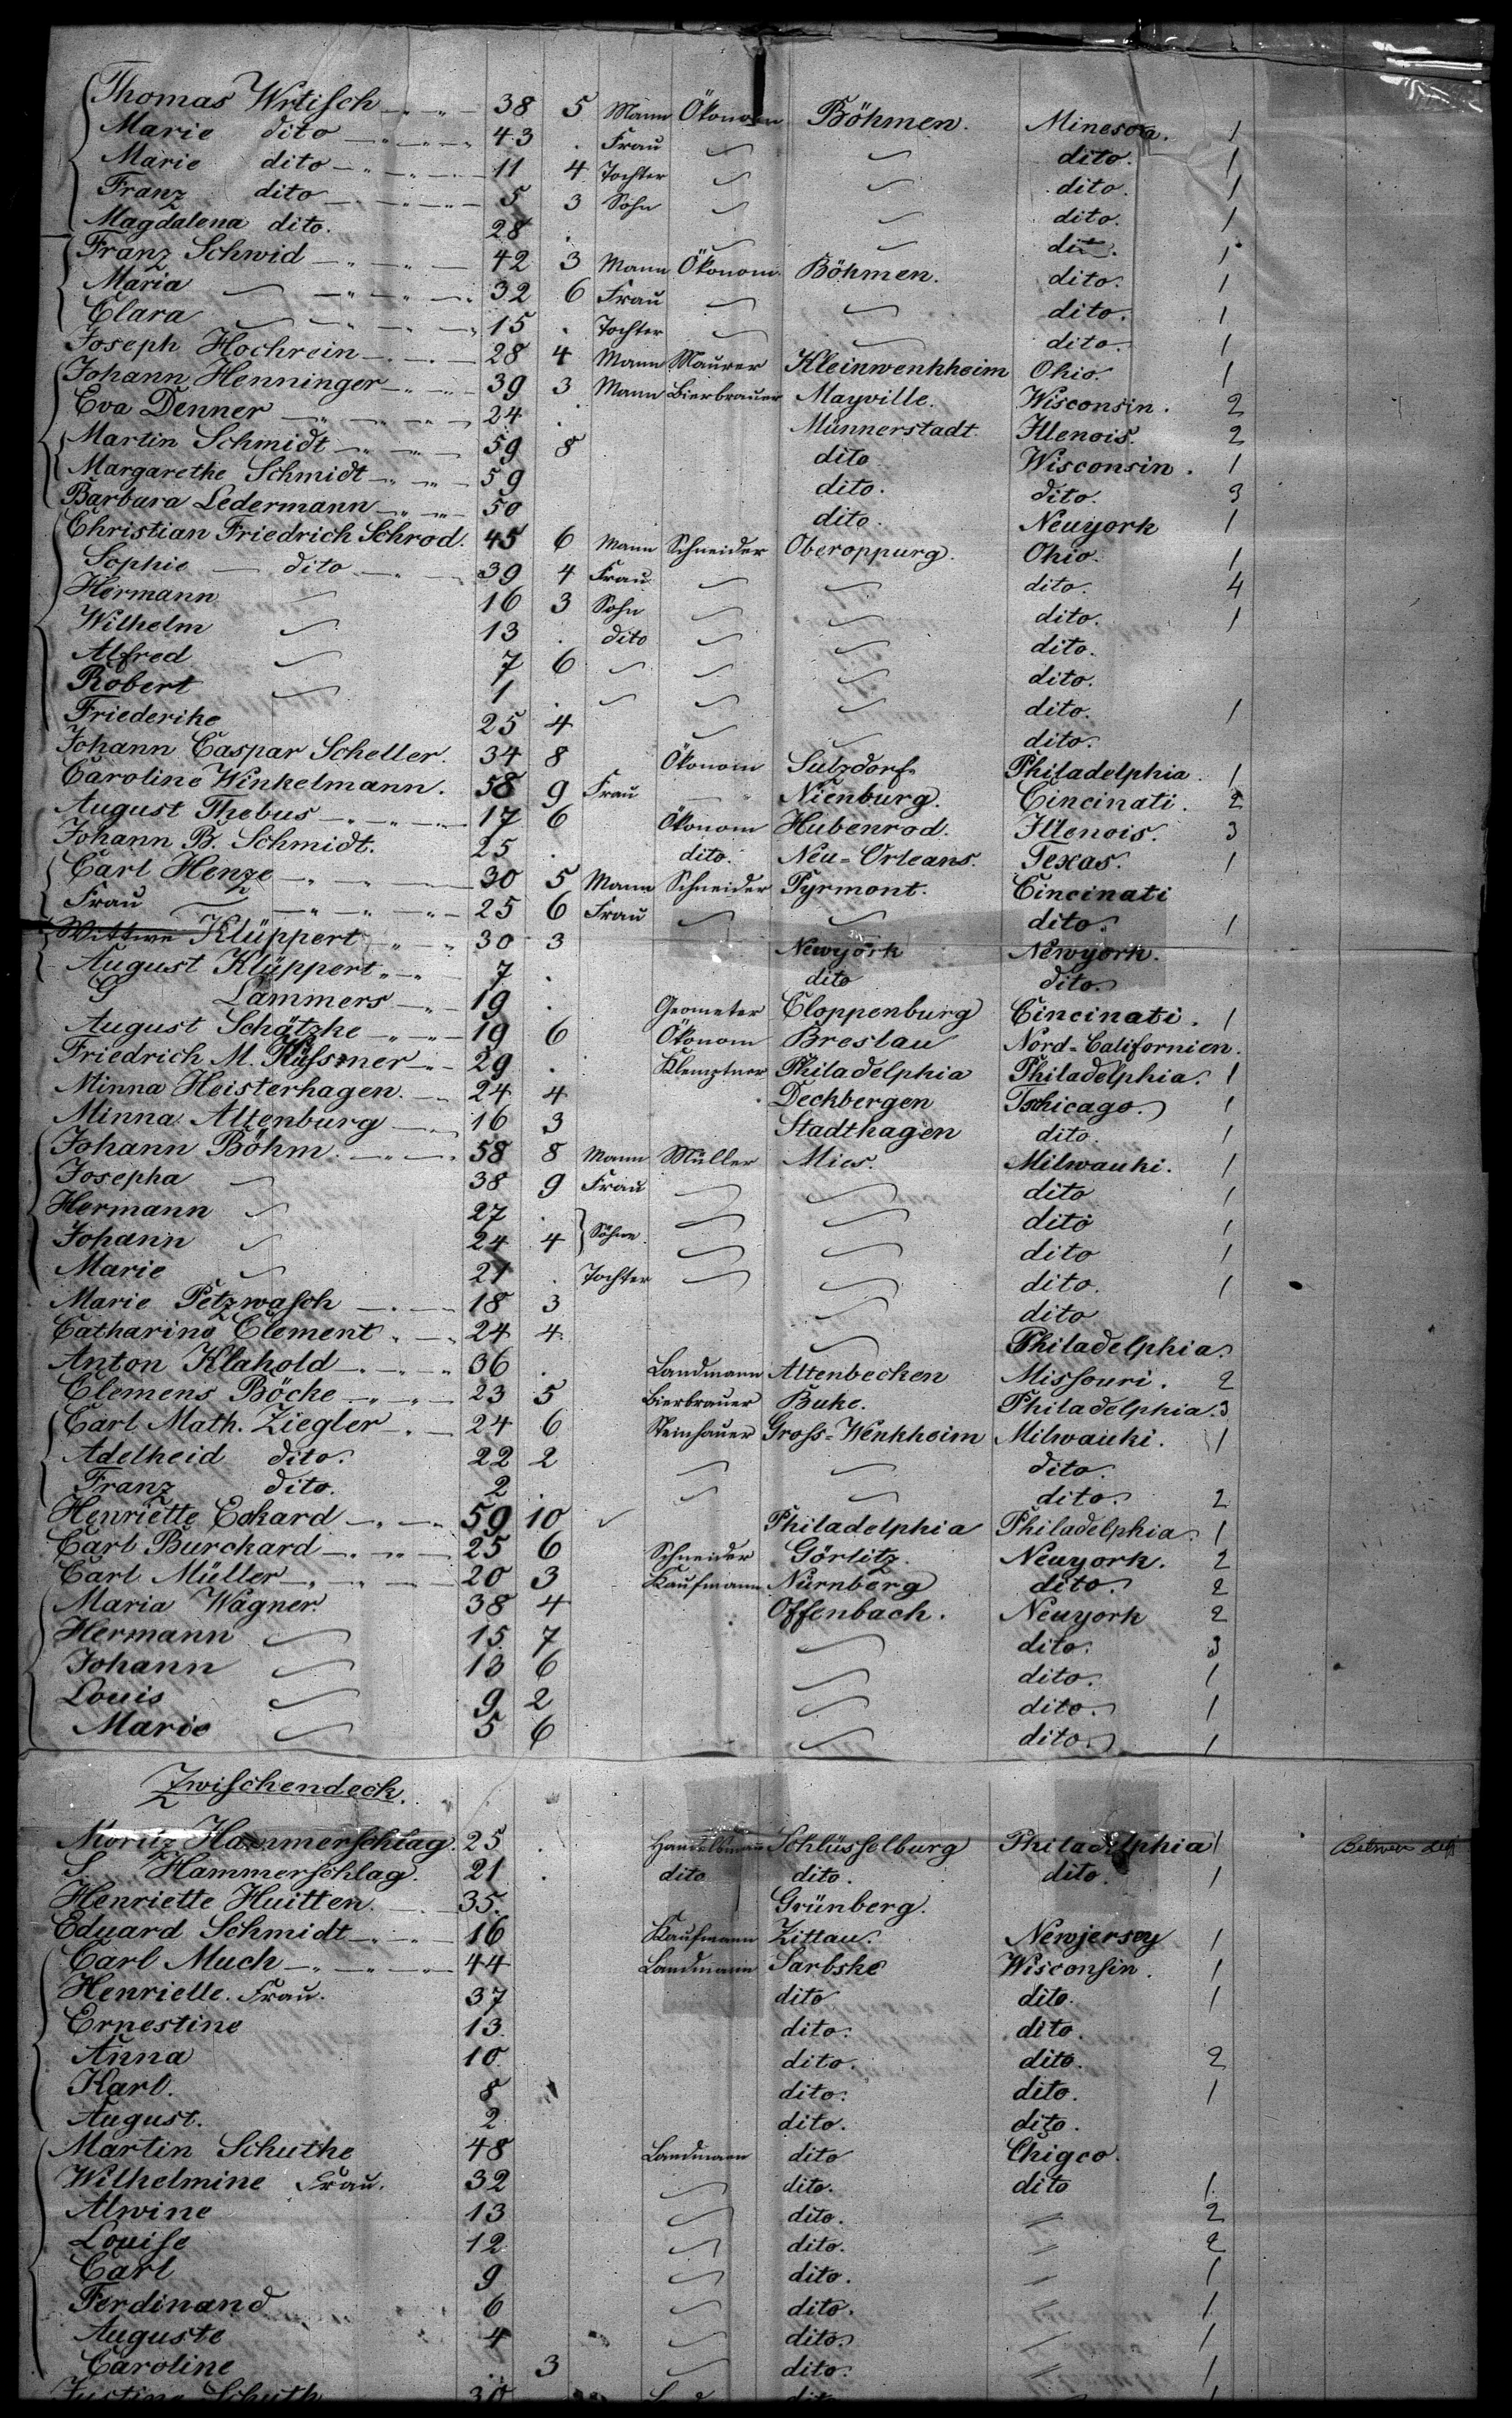 Thomas Wrtisch 38 5 Mann Ökonom Böhmen. Minesota. 1
Marie dito 43 . Frau dito. 1
Marie dito 11 4 Tochter dito. 1
Franz dito 5 3 Sohn dito. 1
Magdalena dito. 28 . dito. 1
Franz Schwid 42 3 Mann Ökonom Böhmen. dito. 1
Maria 32 6 Frau dito. 1
Clara 15 . Tochter dito. 1
Joseph Hochrein 28 4 Mann Maurer Kleinwenkheim Ohio. 1
Johann Henninger 39 3 Mann Bierbrauer Mayville. Wisconsin. 2
Eva Denner 24 . Münnerstadt. Illenois. 2
Martin Schmidt 59 8 dito Wisconsin. 1
Margarethe Schmidt 59 dito. dito. 3
Barbara Ledermann 50 dito. Neuyork 1
Christian Friedrich Schrod. 45 6 Mann Schneider Oberoppurg. Ohio. 1
Sophie dito 39 4 Frau dito. 4
Hermann 16 3 Sohn dito. 1
Wilhelm 13 . dito dito.
Alfred 7 6 dito.
Robert 1 . dito. 1
Friederike 25 4 dito.
Johann Caspar Scheller. 34 8 Ökonom Sulzdorf. Philadelphia. 1
Caroline Winkelmann. 58 9 Frau Nienburg. Cincinati. 2
August Thebus 17 6 Ökonom Hubenrod. Illenois. 3
Johann B. Schmidt. 25 . dito. Neu-Orleans. Texas. 1
Carl Henze 30 5 Mann Schneider Pyrmont. Cincinati
Frau 25 6 Frau dito. 1
Wittwe Klüppert 30 3 Newyork Newyork.
August Klüppert 7 . dito dito.
G Lammers 19 . Geometer Cloppenburg Cincinati. 1
August Schätzke 19 6 Ökonom Breslau Nord-Californien.
Friedrich M. 29 . Klemptner Philadelphia Philadelphia. 1
Minna Heisterhagen. 24 4 Deckbergen Tschicago. 1
Minna Altenburg 16 3 Stadthagen dito. 1
Johann Böhm. 58 8 Mann Müller Mies. Milwauki. 1
Josepha 38 9 Frau dito 1
Hermann 27 . Söhne. dito 1
Johann 24 4 dito 1
Marie 21 . Tochter dito. 1
Marie Petzwasch 18 3 dito
Catharina Clement 24 4 Philadelphia.
Anton Klahold 36 . Landmann Altenbecken Missouri. 2
Clemens Böcke 23 5 Bierbrauer Buke. Philadelphia. 3
Carl Math. Ziegler 24 6 Steinhauer Gross-Wenkheim Milwauki. 1
Adelheid dito. 22 2 dito.
Franz dito. 2 . dito. 2
Henriette Eckard 59 10 Philadelphia Philadelphia 1
Carl Burchard 25 6 Schneider Görlitz. Neuyork. 2
Carl Müller 20 3 Kaufmann Nürnberg dito. 2
Maria Wagner. 38 4 Offenbach. Neuyork 2
Hermann 15 7 dito. 3
Johann 13 6 dito. 1
Louis 9 2 dito. 1
Marie 5 6 dito 1
Zwischendeck.
Moritz Hammerschlag. 25 . Handelsmann Schlüsselburg Philadelphia 1
S. Hammerschlag. 21 . dito dito. dito. 1
Henriette Huitten. 35. Grünberg.
Eduard Schmidt 16 Kaufmann Zittau. Newjersey 1
Carl Much 44 Landmann Sarbske Wisconsin. 1
Henrielle. Frau. 37 dito dito. 1
Ernestine 13. dito. dito.
Anna 10 dito. dito. 2
Karl. 8 dito. dito. 1
August. 2 dito. dito.
Martin Schuthe 48 Landmann dito Chigco.
Wilhelmine Frau. 32 dito. dito 1
Alwine 13 dito. " 2
Louise 12 dito. " 2
Carl 9 dito. " 1
Ferdinand 6 dito. " 1
Auguste 4 dito. " 1
Caroline 3 dito. " 1
Justine Schuth 30